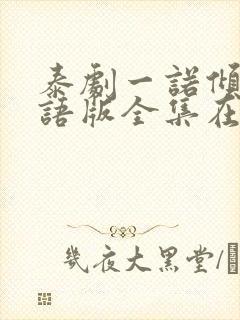 泰劇一諾傾
語版全集在
幾夜大黑堂/